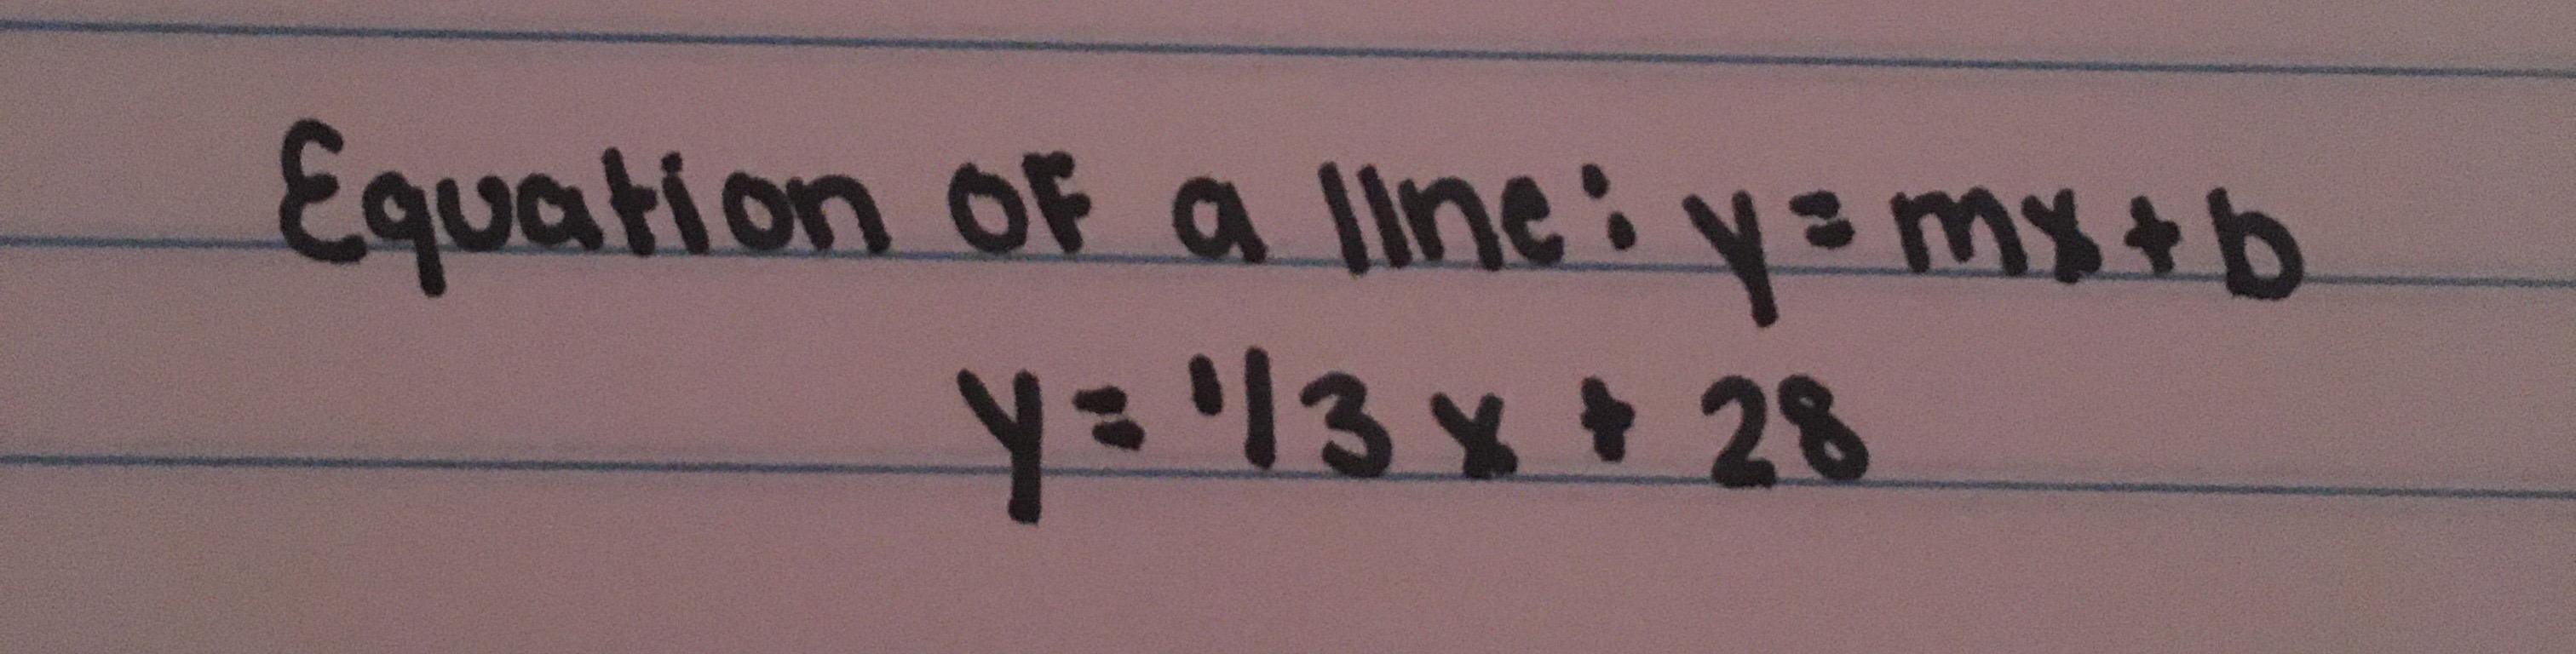 Equation of a line: y = mx + b
y = 1/3 x + 28